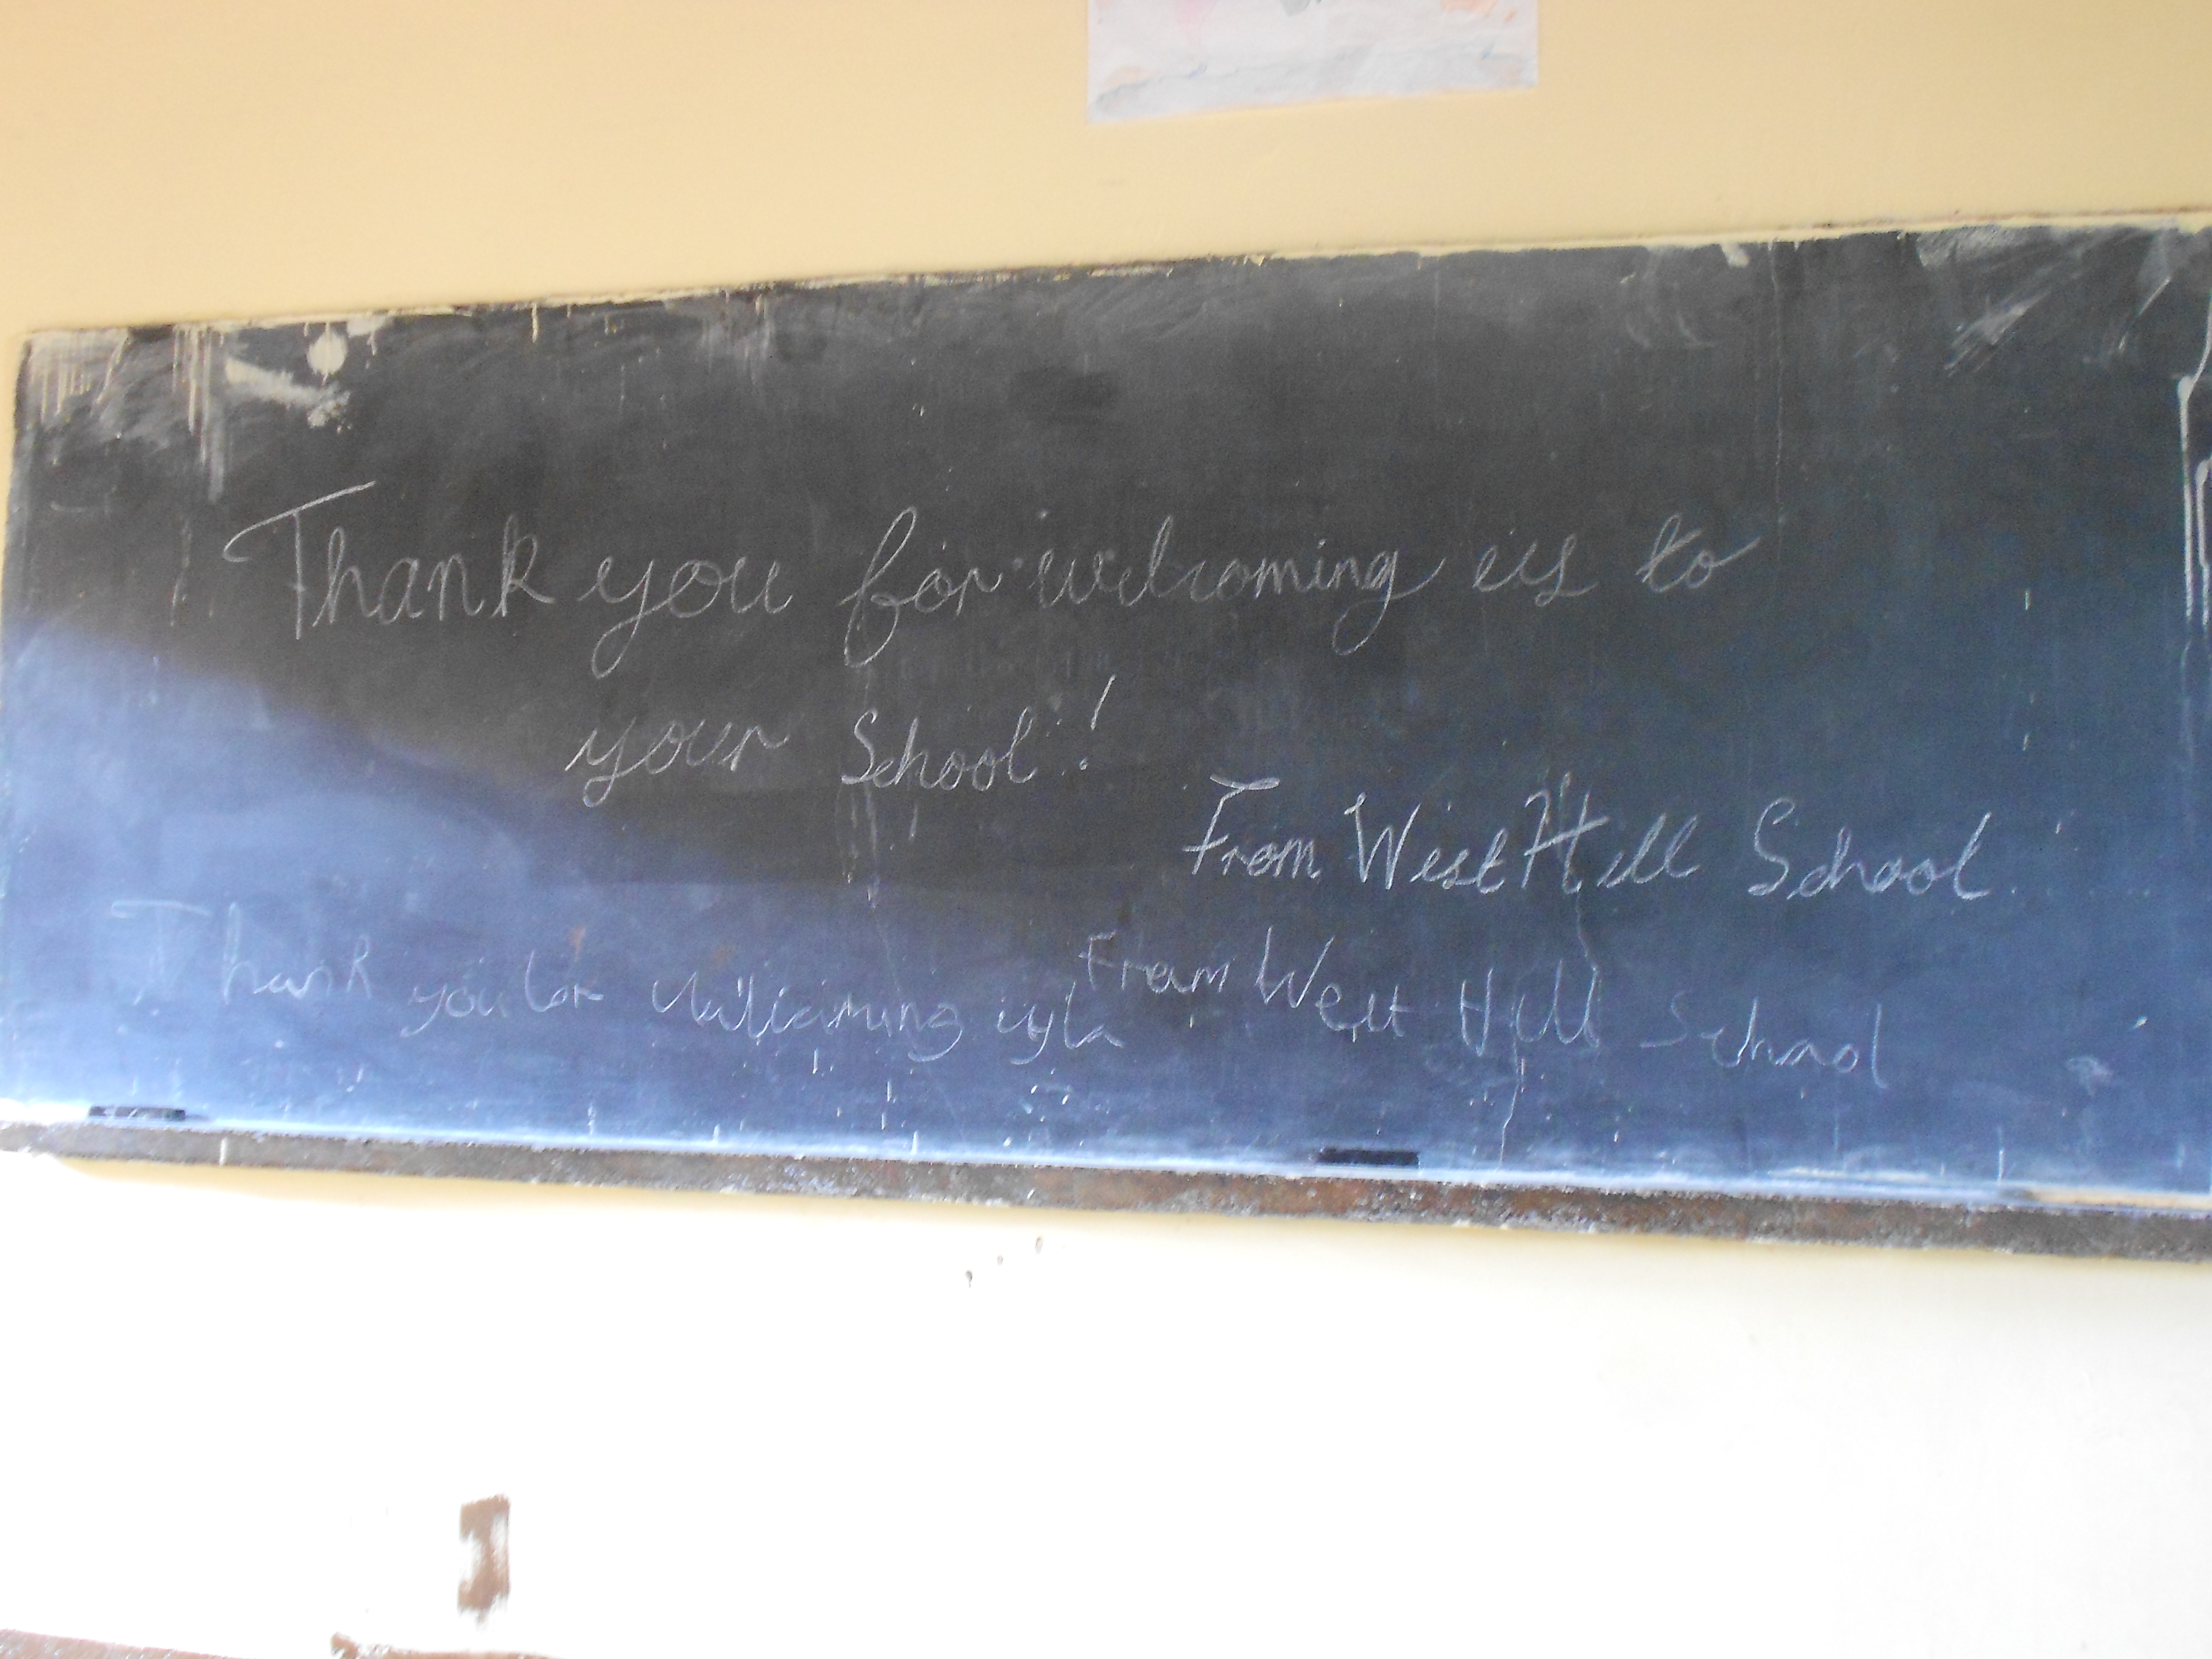 Thank you for welcoming us to
your School!
From West Hill School.
Thank you
From West Hill School